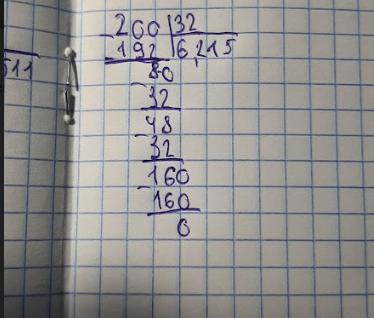 260 | 32
-192 | 6,215
511
80
-32
48
-32
160
-160
0